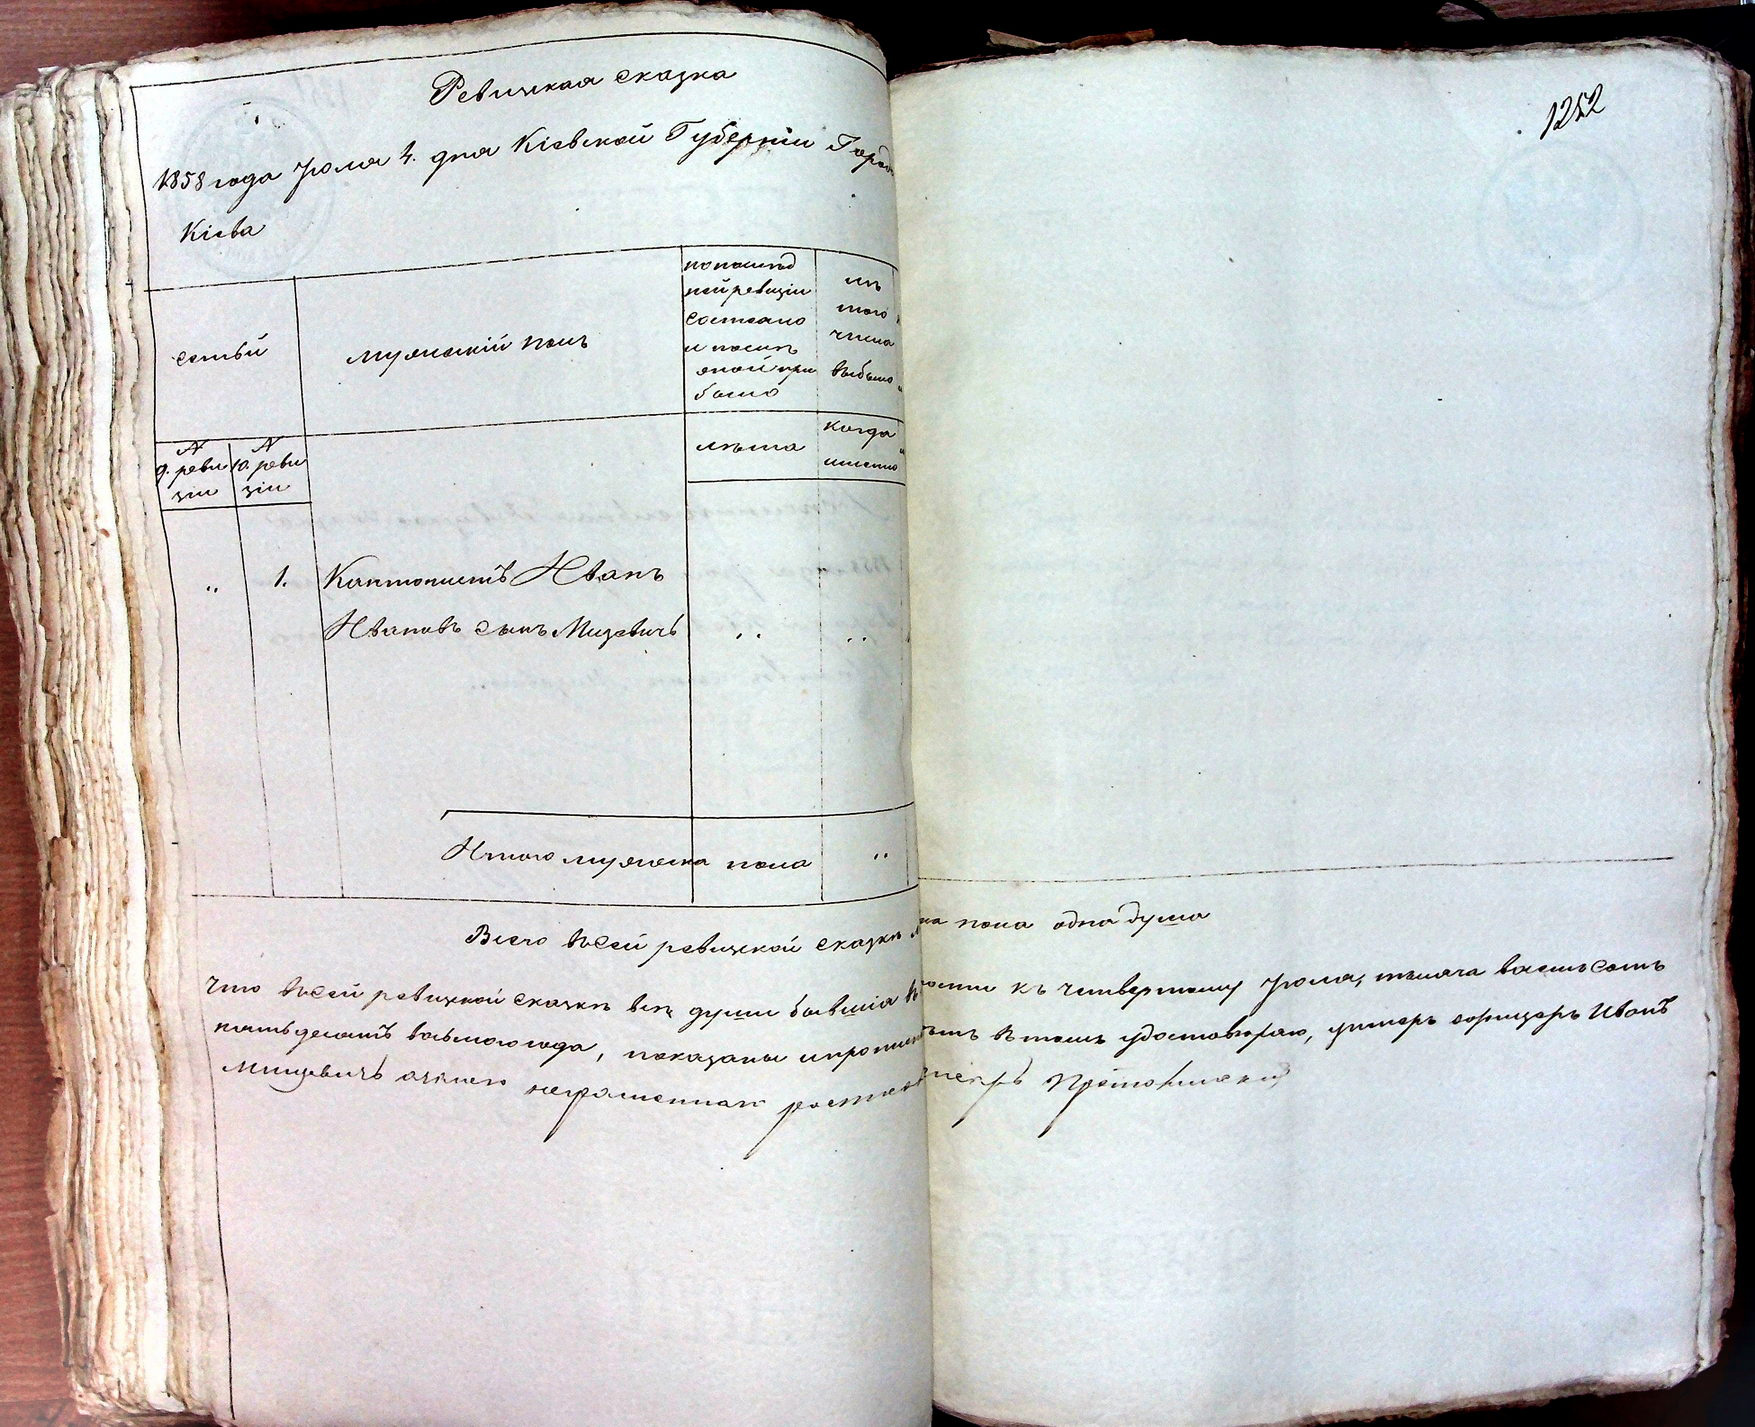 Ревижкая сказка
1252
1858 года Јюля 4. дня Кіевской Губерніи Города
Кіева
семьй
мужескій полъ
по послѣд
ней ревизіи
состояло
и послѣ
оной при
было
изъ
того
числа
выбыло
N
9. реви
зіи
N
10. реви
зіи
лѣта
когда
имянно
„ 1. Кантонистъ Иванъ
Ивановъ сынъ Мицевичъ
Итого мужеска пола „
Всего всей ревижкой сказкѣ
ка пола одна душа
Что всей ревижкой сказкѣ всѣ души бывшіа
къ четвертому Јюля, тысяча восемьсотъ
пятьдесятъ восьмого года, показаны и
въ томъ удостовѣраю, унтеръ офицеръ Иванъ
Мицевичъ неграмотнаго